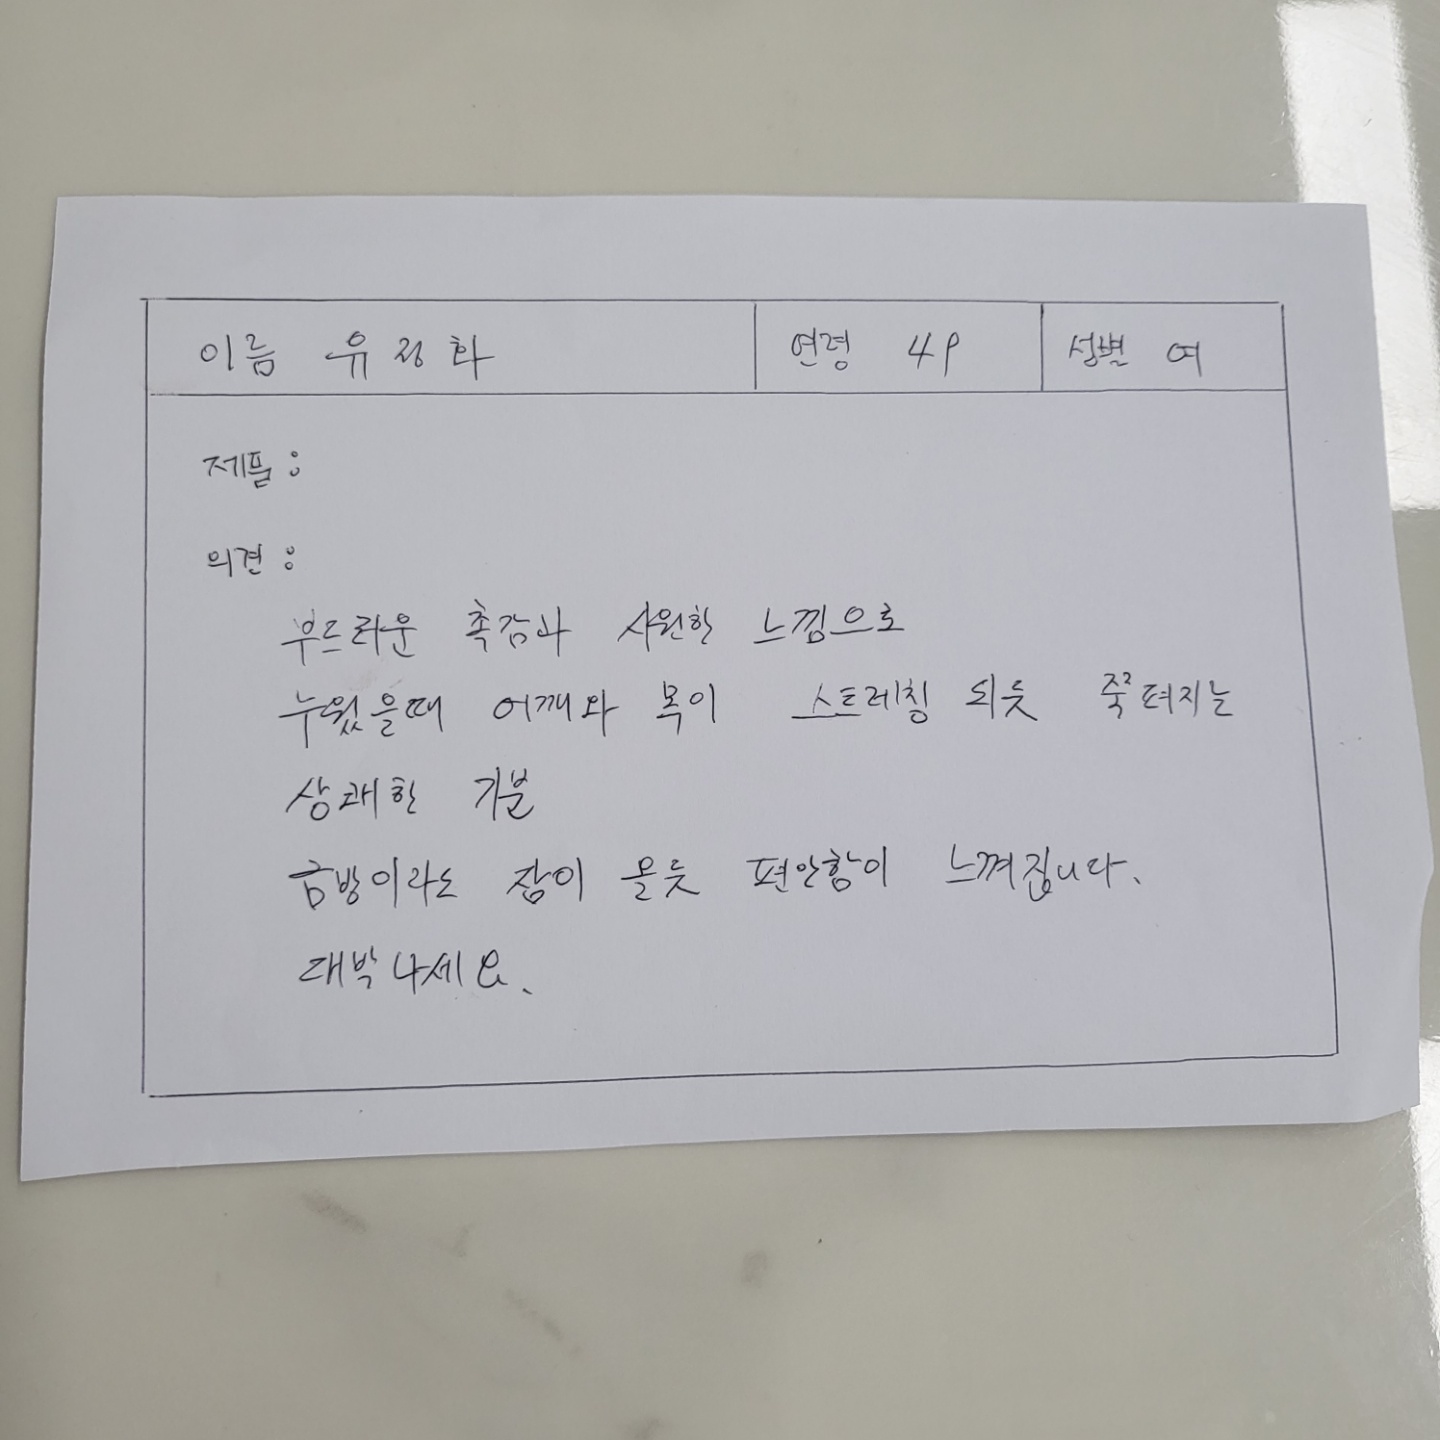 이름 유정화 연령 49 성별 여
제품 :
의견 :
부드러운 촉감과 시원한 느낌으로
누웠을때 어깨와 목이 스트레칭 되듯 쭉² 펴지는
상쾌한 기분
금방이라도 잠이 올듯 편안함이 느껴집니다.
대박나세요.